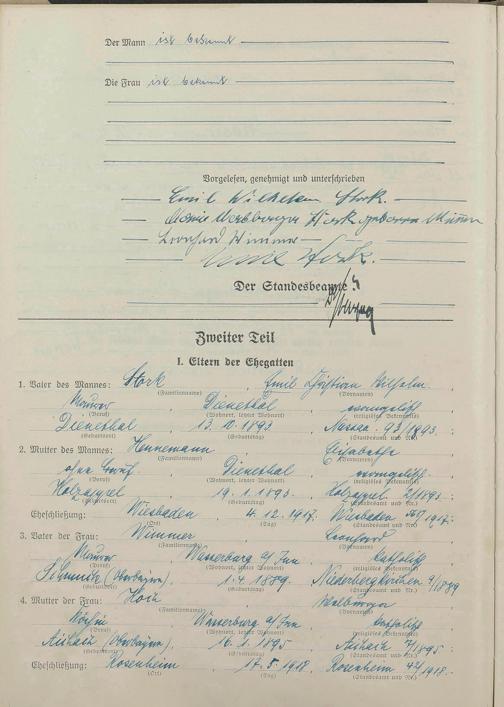 Der Mann ist bekannt
Die Frau ist bekannt
Vorgelesen, genehmigt und unterschrieben
Emil Wilhelm Stork.
Stork geborene
Leonhard Wimmer
Emil Stork.
Der Standesbeamte
Zweiter Teil
I. Eltern der Ehegatten
1. Vater des Mannes: Stork, Emil Christian Wilhelm.
(Familienname) (Vornamen)
Maurer Dienethal evangelisch
(Beruf) (Wohnort, letzter Wohnort) (religiöses Bekenntnis)
Dienethal 13.10.1893 Nassau 93/1893.
(Geburtsort) (Geburtstag) (Standesamt und Nr.)
2. Mutter des Mannes: Hennemann Elisabethe
(Familienname) (Vornamen)
ohne Beruf Dienethal evangelisch
(Beruf) (Wohnort, letzter Wohnort) (religiöses Bekenntnis)
Holzappel 19.1.1893. Holzappel 2/1893.
(Geburtsort) (Geburtstag) (Standesamt und Nr.)
Eheschließung: Wiesbaden 4.12.1917. Wiesbaden /1917.
(Ort) (Tag) (Standesamt und Nr.)
3. Vater der Frau: Wimmer Leonhard
(Familienname) (Vornamen)
Maurer Wasserburg a/Inn katholisch
(Beruf) (Wohnort, letzter Wohnort) (religiöses Bekenntnis)
(Oberbayern). 1.4.1889. Niederbergkirchen 9/1889
(Geburtsort) (Geburtstag) (Standesamt und Nr.)
4. Mutter der Frau: Walburga
(Familienname) (Vornamen)
Köchin Wasserburg a/Inn katholisch
(Beruf) (Wohnort, letzter Wohnort) (religiöses Bekenntnis)
Aichach (Oberbayern). 16.1.1895. Aichach /1895.
(Geburtsort) (Geburtstag) (Standesamt und Nr.)
Eheschließung: Rosenheim 17.5.1918. Rosenheim 42/1918.
(Ort) (Tag) (Standesamt und Nr.)